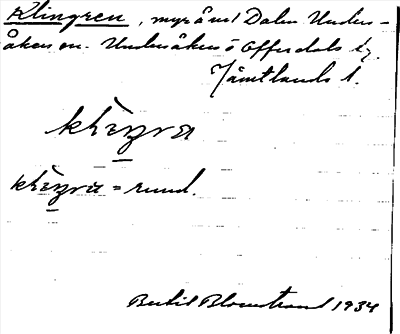 Klingren, myr åmt Dalen Under-
åkers sn. Undersåkers o Offerdals tg.
Jämtlands l.
= rund.
Bertil Blomstrand 1934